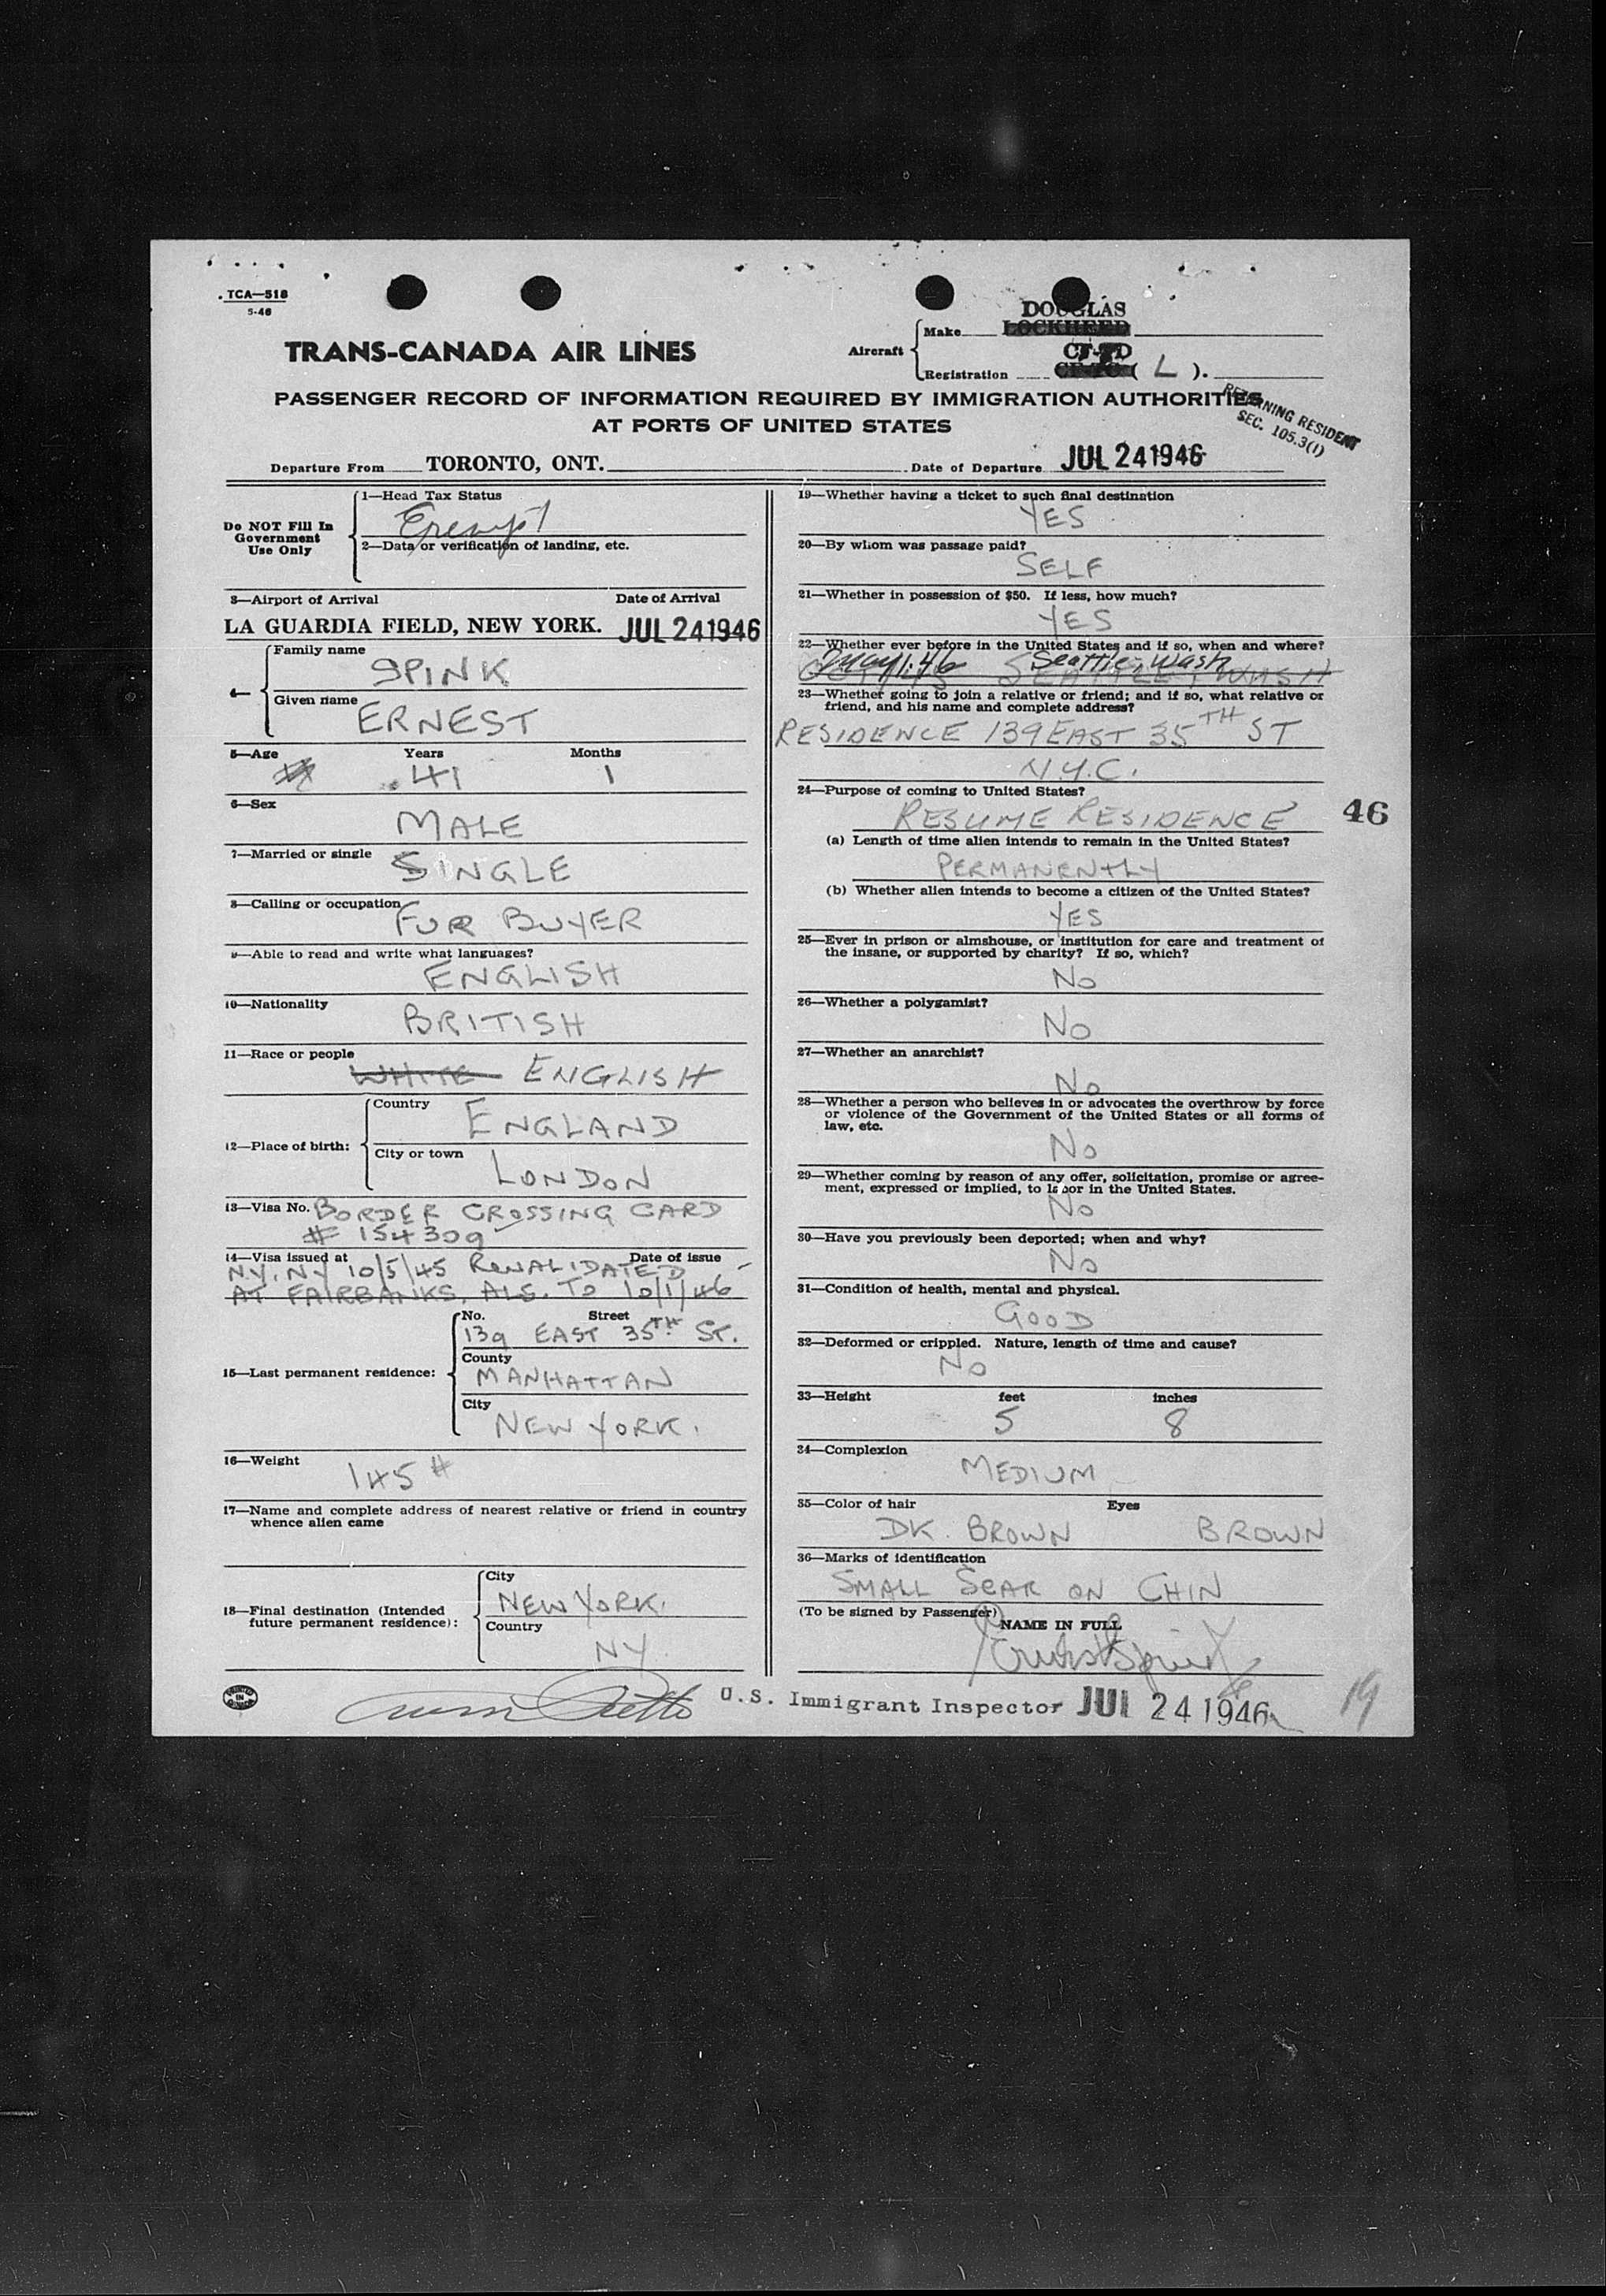 TCA—518
5-46
TRANS-CANADA AIR LINES
Aircraft
Make DOUGLAS
LOCKHEED
Registration CF-TD
( L ).
PASSENGER RECORD OF INFORMATION REQUIRED BY IMMIGRATION AUTHORITIES
AT PORTS OF UNITED STATES
RETURNING RESIDENT
SEC. 105.3(1)
Departure From TORONTO, ONT. Date of Departure JUL 24 1946
Do NOT Fill In
Government
Use Only
1—Head Tax Status
Exempt
2—Data or verification of landing, etc.
3—Airport of Arrival Date of Arrival
LA GUARDIA FIELD, NEW YORK. JUL 24 1946
4—
Family name
SPINK
Given name
ERNEST
5—Age Years Months
41 1
6—Sex
MALE
7—Married or single
SINGLE
8—Calling or occupation
FUR BUYER
9—Able to read and write what languages?
ENGLISH
10—Nationality
BRITISH
11—Race or people
WHITE ENGLISH
12—Place of birth:
Country
ENGLAND
City or town
LONDON
13—Visa No. BORDER CROSSING CARD
# 154309
14—Visa issued at Date of issue
N.Y. NY 10/5/45 REVALIDATED
AT FAIRBANKS, ALS. TO 10/1/46
15—Last permanent residence:
No. Street
139 EAST 35TH ST.
County
MANHATTAN
City
NEW YORK.
16—Weight
145 #
17—Name and complete address of nearest relative or friend in country
whence alien came
18—Final destination (Intended
future permanent residence):
City
NEW YORK.
Country
NY
19—Whether having a ticket to such final destination
YES
20—By whom was passage paid?
SELF
21—Whether in possession of $50. If less, how much?
YES
22—Whether ever before in the United States and if so, when and where?
May 1.46 Seattle, Wash
SEATTLE, WASH
23—Whether going to join a relative or friend; and if so, what relative or
friend, and his name and complete address?
RESIDENCE 139 EAST 35TH ST
N.Y.C.
24—Purpose of coming to United States?
RESUME RESIDENCE
46
(a) Length of time alien intends to remain in the United States?
PERMANENTLY
(b) Whether alien intends to become a citizen of the United States?
YES
25—Ever in prison or almshouse, or institution for care and treatment of
the insane, or supported by charity? If so, which?
No
26—Whether a polygamist?
No
27—Whether an anarchist?
No
28—Whether a person who believes in or advocates the overthrow by force
or violence of the Government of the United States or all forms of
law, etc.
No
29—Whether coming by reason of any offer, solicitation, promise or agree-
ment, expressed or implied, to labor in the United States.
No
30—Have you previously been deported; when and why?
No
31—Condition of health, mental and physical.
GOOD
32—Deformed or crippled. Nature, length of time and cause?
No
33—Height feet inches
5 8
34—Complexion
MEDIUM
35—Color of hair Eyes
DK. BROWN BROWN
36—Marks of identification
SMALL SCAR ON CHIN
(To be signed by Passenger)
NAME IN FULL
Ernest Spink
PRINTED IN CANADA
U.S. Immigrant Inspector JUL 24 1946
19